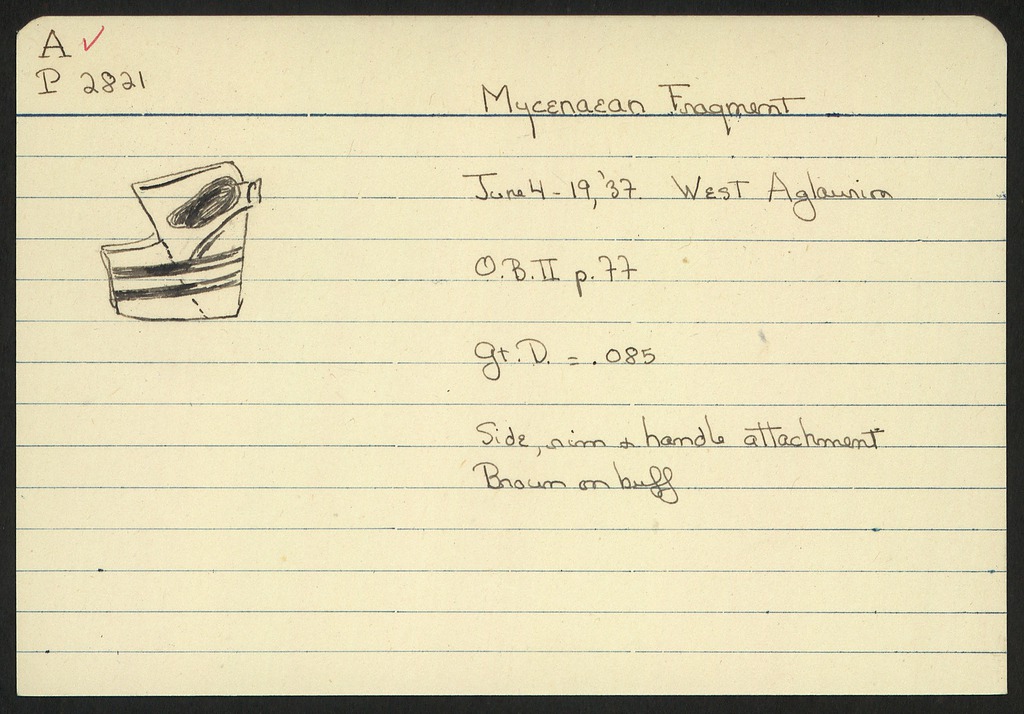 A ✓
P 2821
Mycenaean Fragment
June 4-19, '37. West Aglaurion
O.B. II p. 77
Gt. D. = .085
Side, rim & handle attachment
Brown on buff